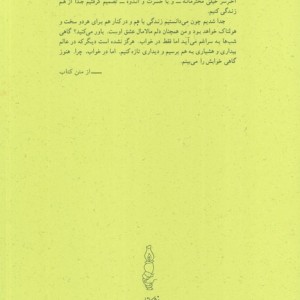 آخرش خیلی محترمانه ـــ و با حسرت و اندوه ـــ تصمیم گرفتیم جدا از هم
زندگی کنیم.
جدا شدیم چون می‌دانستیم زندگی با هم و در کنار هم برای هردو سخت و
هولناک خواهد بود و من همچنان دلم مالامال عشق اوست. باور می‌کنید؟ گاهی
شب‌ها به سراغم می‌آید اما فقط در خواب. هرگز نشده است دیگر که در عالم
بیداری و هشیاری به هم برسیم و دیداری تازه کنیم. اما در خواب، چرا. هنوز
گاهی خوابش را می‌بینم.
ـــ از متن کتاب